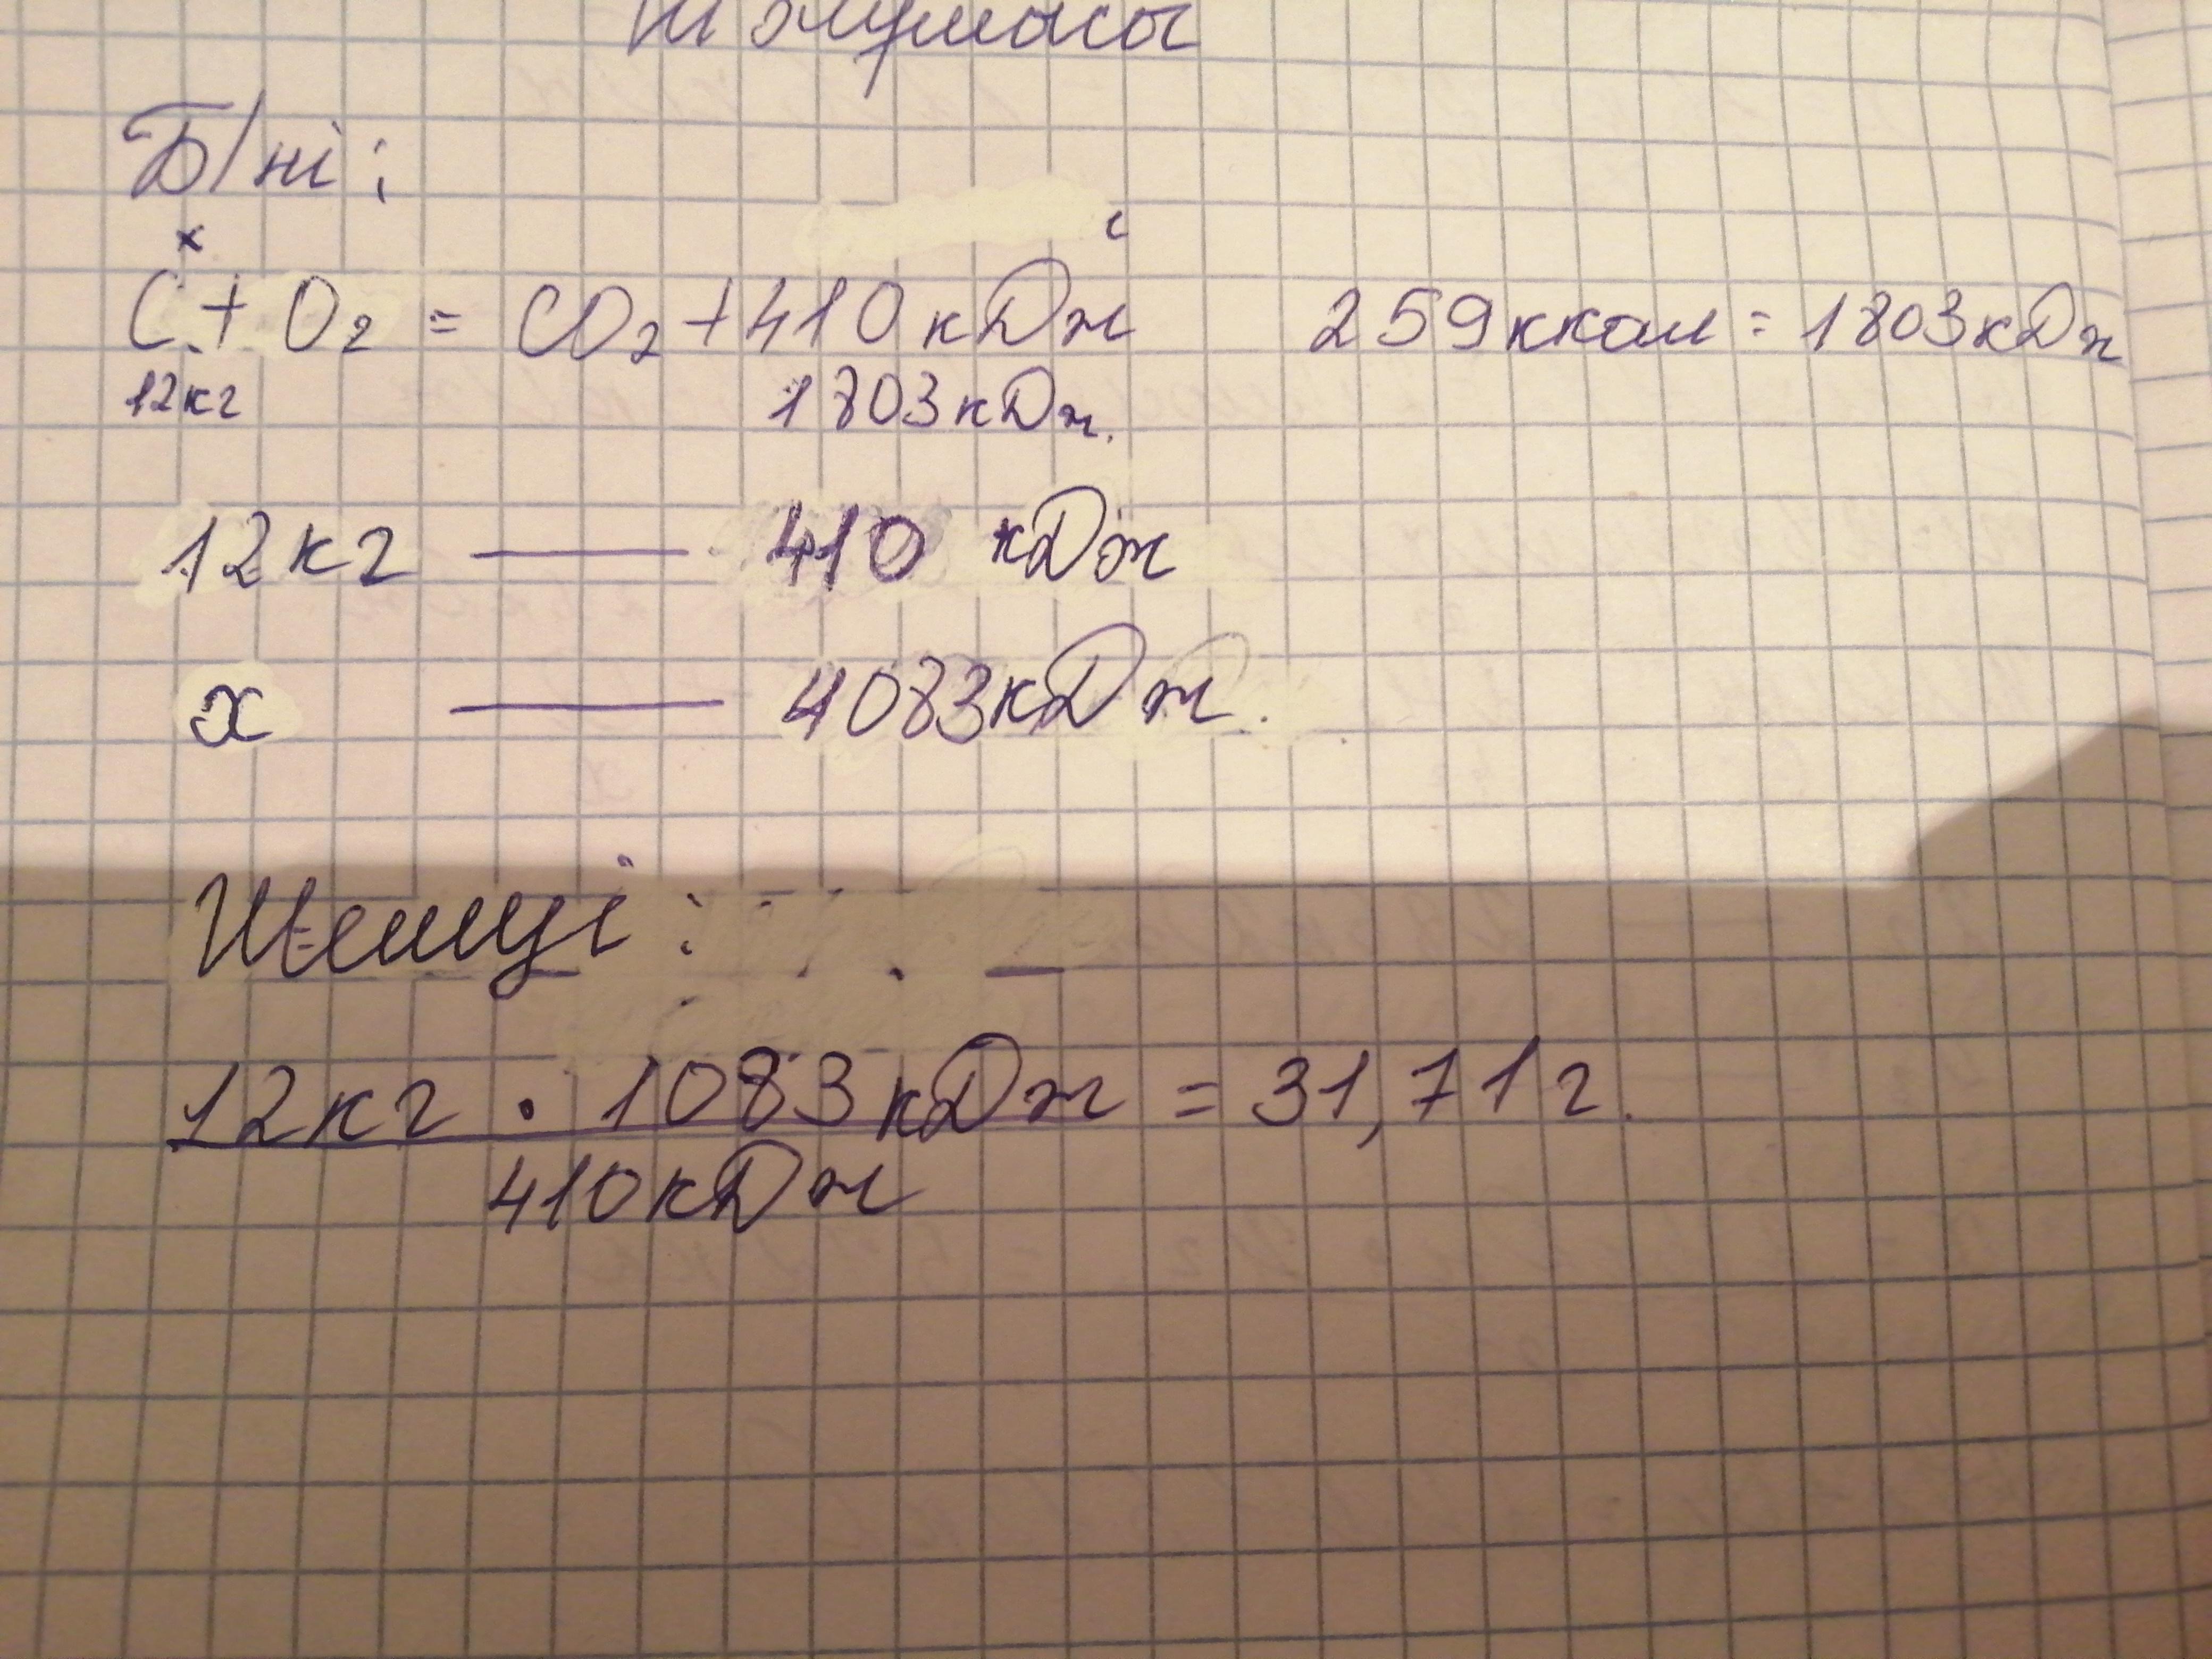 Б/ні:
x
C + O₂ = CO₂ + 410 кДж 259 ккал = 1803 кДж
12кг 1803 кДж.
12кг — 410 кДж
x — 4083 кДж.
Шешуі:
12кг · 1083 кДж = 31,71 г.
410 кДж